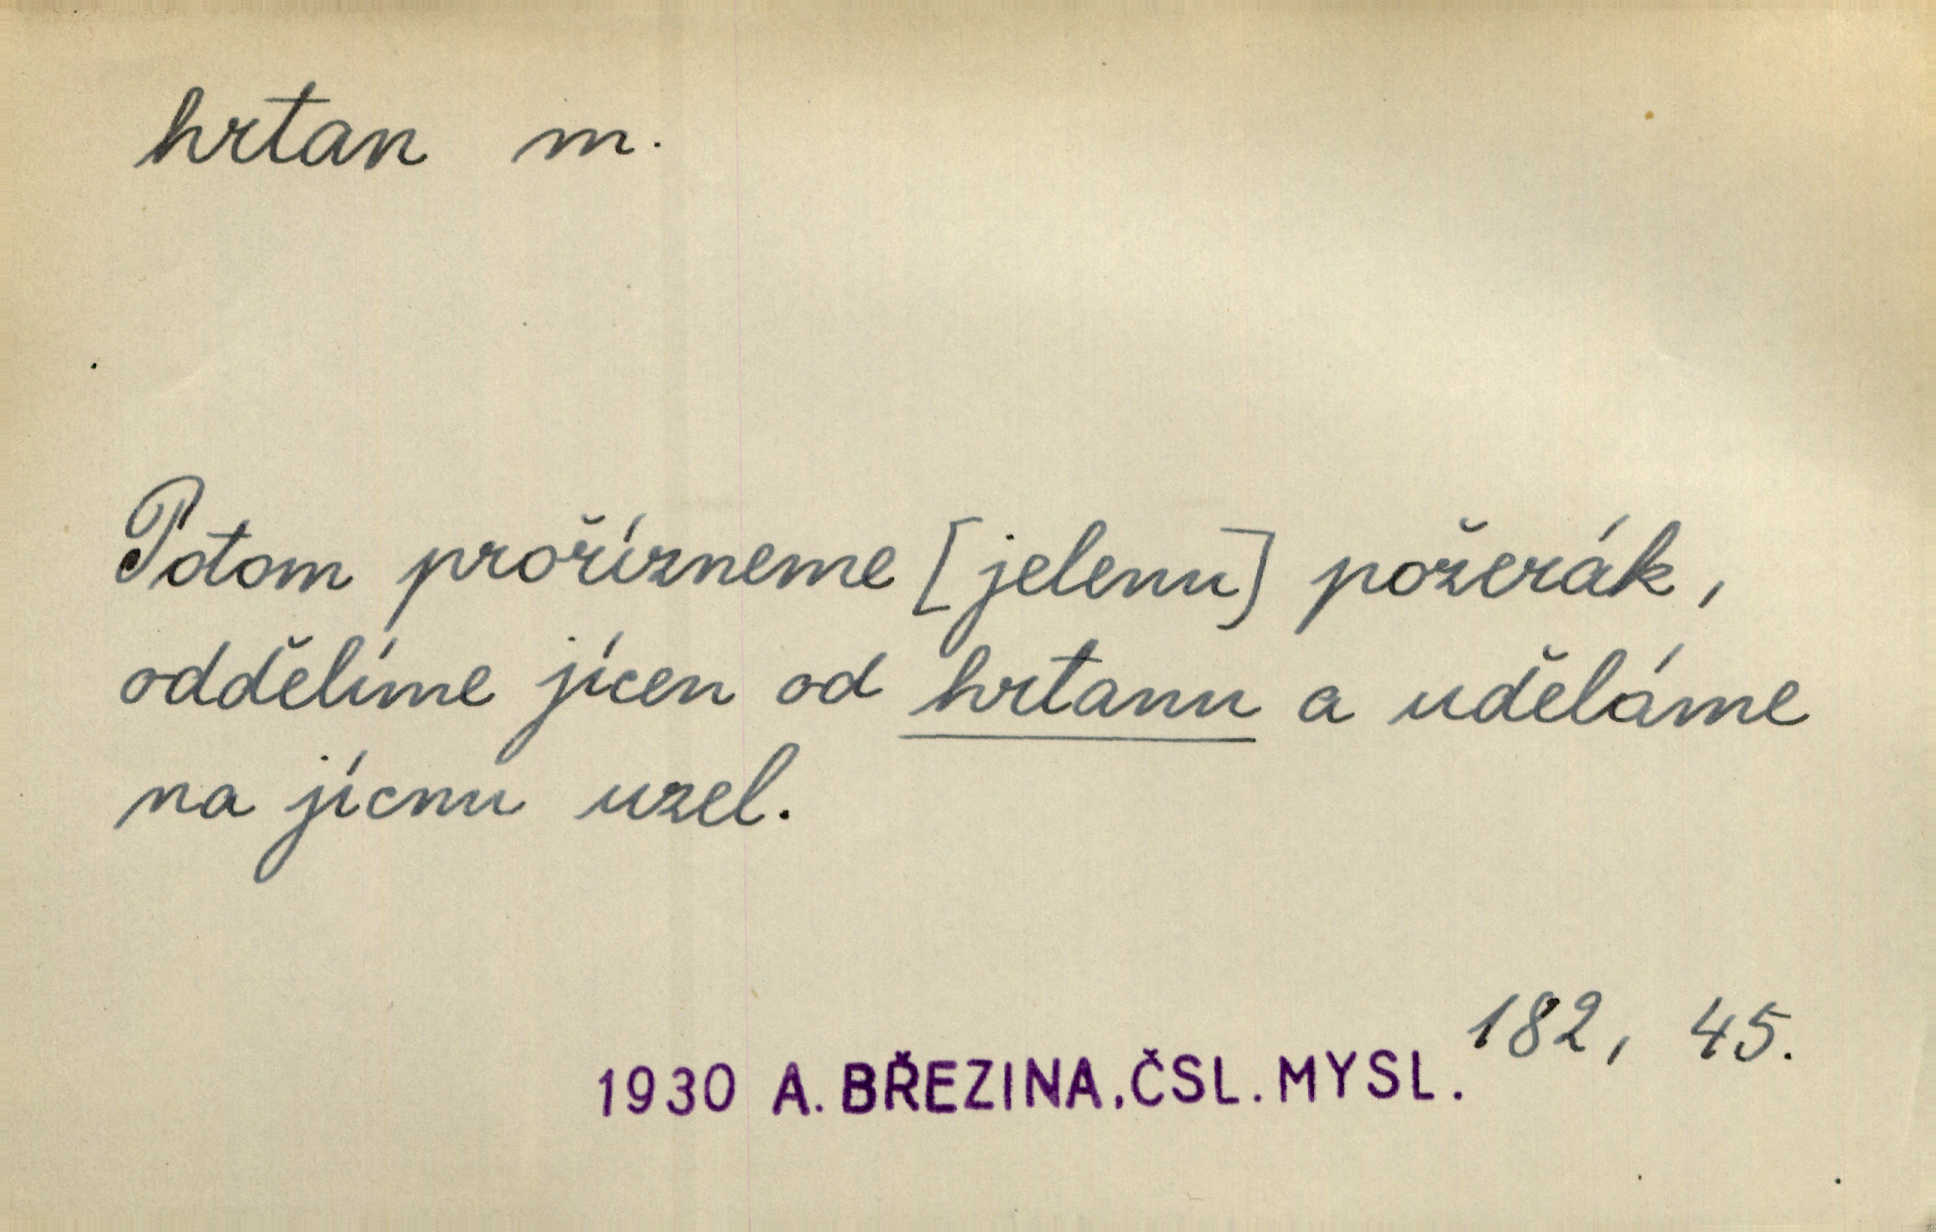 hrtan m.
Potom prořízneme [jelenu] požerák,
oddělíme jícen od hrtanu a uděláme
na jícnu uzel.
182, 45.
1930 A. BŘEZINA, ČSL. MYSL.